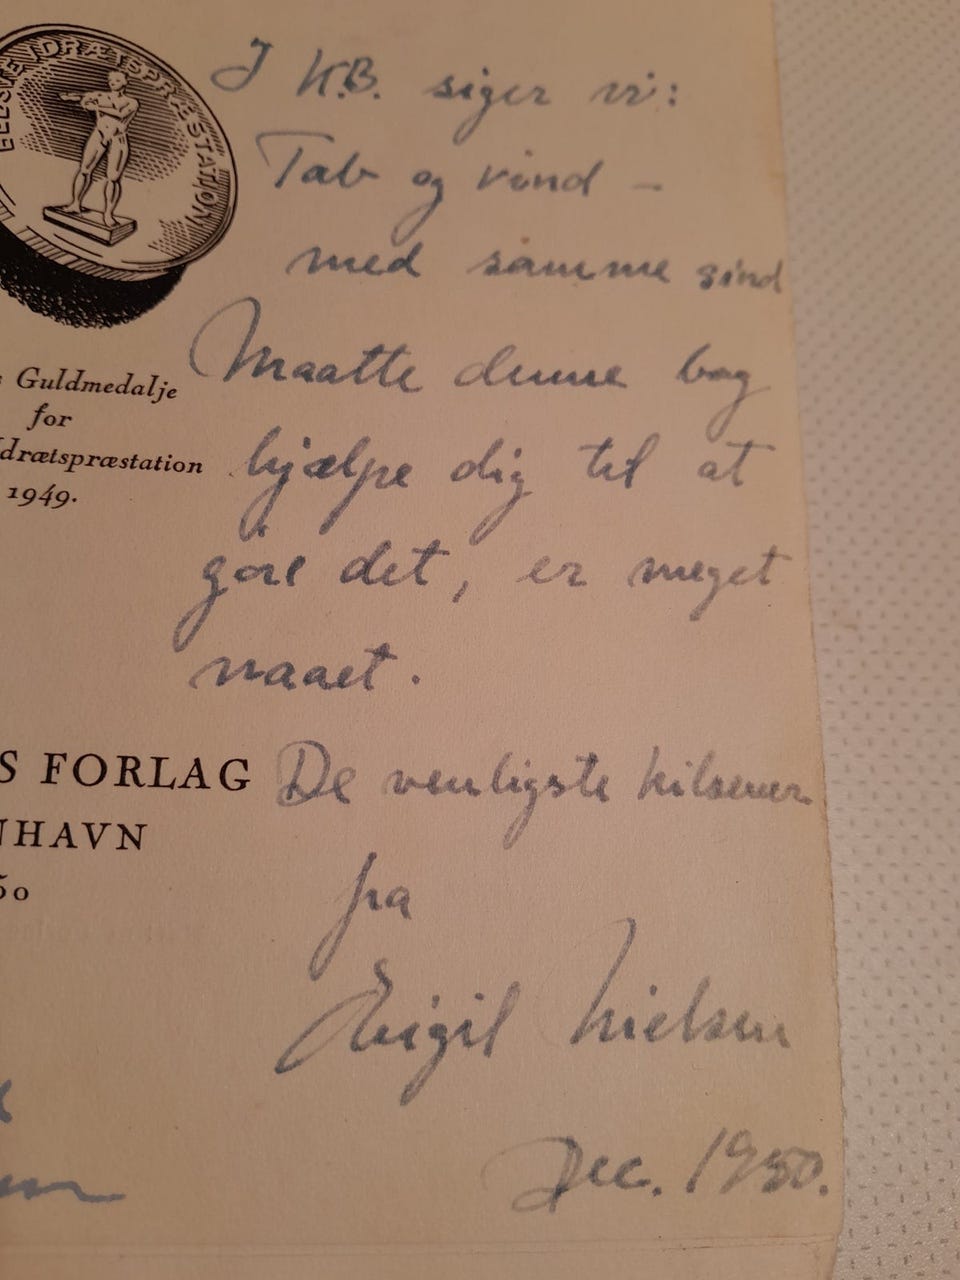 IDRÆTSPRÆSTATION
I K.B. siger vi:
Tab og vind –
med samme sind
Maatte denne bog
hjælpe dig til at
gøre det, er meget
naaet.
De venligste hilsener
fra
Eigil Nielsen
Dec. 1950.
Guldmedalje
for
drætspræstation
1949.
S FORLAG
NHAVN
50